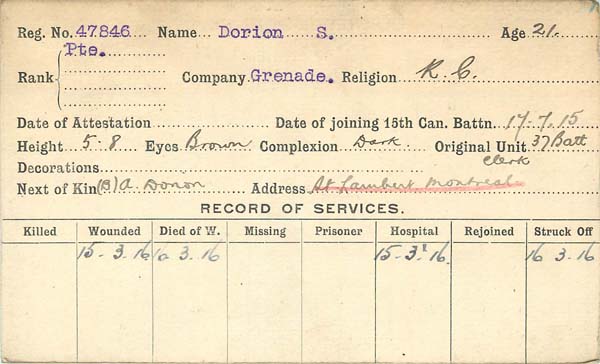 Reg. No. 47846 Name Dorion S. Age 21.
Pte.
Rank Company. Grenade. Religion R. C.
Date of Attestation Date of joining 15th Can. Battn. 17-7.15
Height 5-8 Eyes Brown Complexion Dark. Original Unit 37 Batt
Clerk
Decorations
Next of Kin (B) A. Dorion Address St Lambert Montreal
RECORD OF SERVICES.
Killed Wounded Died of W. Missing Prisoner Hospital Rejoined Struck Off
15-3.16 3.16 15-3-16 16 3-16